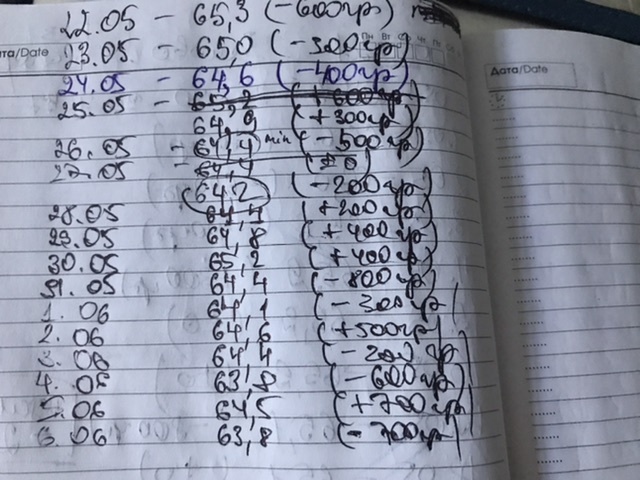 22.05 - 65,3 (-600гр)
23.05 - 65,0 (-300гр)
ата/Date
24.05 - 64,6 (-400гр)
25.05 - 65,2 (+600гр)
64,9 (+300гр)
26.05 - 64,4 min (-500гр)
27.05 - 64,4 (±0)
64,2 (-200гр)
28.05 64,4 (+200гр)
29.05 64,8 (+400гр)
30.05 65,2 (+400гр)
31.05 64,4 (-800гр)
1.06 64,1 (-300гр)
2.06 64,6 (+500гр)
3.06 64,4 (-200гр)
4.06 63,8 (-600гр)
5.06 64,5 (+700гр)
6.06 63,8 (-700гр)
Дата/Date